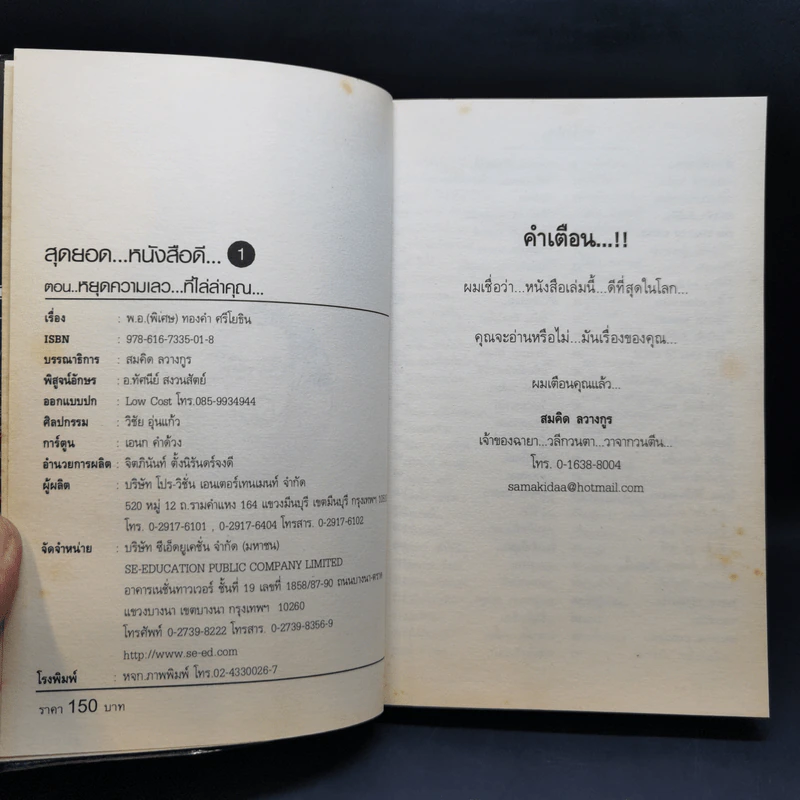 สุดยอด...หนังสือดี... 1
ตอน..หยุดความเลว...ที่ไล่ล่าคุณ...
เรื่อง : พ.อ.(พิเศษ) ทองคำ ศรีโยธิน
ISBN : 978-616-7335-01-8
บรรณาธิการ : สมคิด ลวางกูร
พิสูจน์อักษร : อ.ทัศนีย์ สงวนสัตย์
ออกแบบปก : Low Cost โทร.085-9934944
ศิลปกรรม : วิชัย อุ่นแก้ว
การ์ตูน : เอนก คำด้วง
อำนวยการผลิต : จิตภินันท์ ตั้งนิรันตร์จงดี
ผู้ผลิต : บริษัท โปร-วิชั่น เอนเตอร์เทนเมนท์ จำกัด
520 หมู่ 12 ถ.รามคำแหง 164 แขวงมีนบุรี เขตมีนบุรี กรุงเทพฯ
โทร. 0-2917-6101 , 0-2917-6404 โทรสาร. 0-2917-6102
จัดจำหน่าย : บริษัท ซีเอ็ดยูเคชั่น จำกัด (มหาชน)
SE-EDUCATION PUBLIC COMPANY LIMITED
อาคารเนชั่นทาวเวอร์ ชั้นที่ 19 เลขที่ 1858/87-90 ถนนบางนา-ตราด
แขวงบางนา เขตบางนา กรุงเทพฯ 10260
โทรศัพท์ 0-2739-8222 โทรสาร. 0-2739-8356-9
http://www.se-ed.com
โรงพิมพ์ : หจก.ภาพพิมพ์ โทร.02-4330026-7
ราคา 150 บาท
คำเตือน...!!
ผมเชื่อว่า...หนังสือเล่มนี้...ดีที่สุดในโลก...
คุณจะอ่านหรือไม่...มันเรื่องของคุณ...
ผมเตือนคุณแล้ว...
สมคิด ลวางกูร
เจ้าของฉายา...วลีกวนตา...วาจากวนตีน...
โทร. 0-1638-8004
samakidaa@hotmail.com